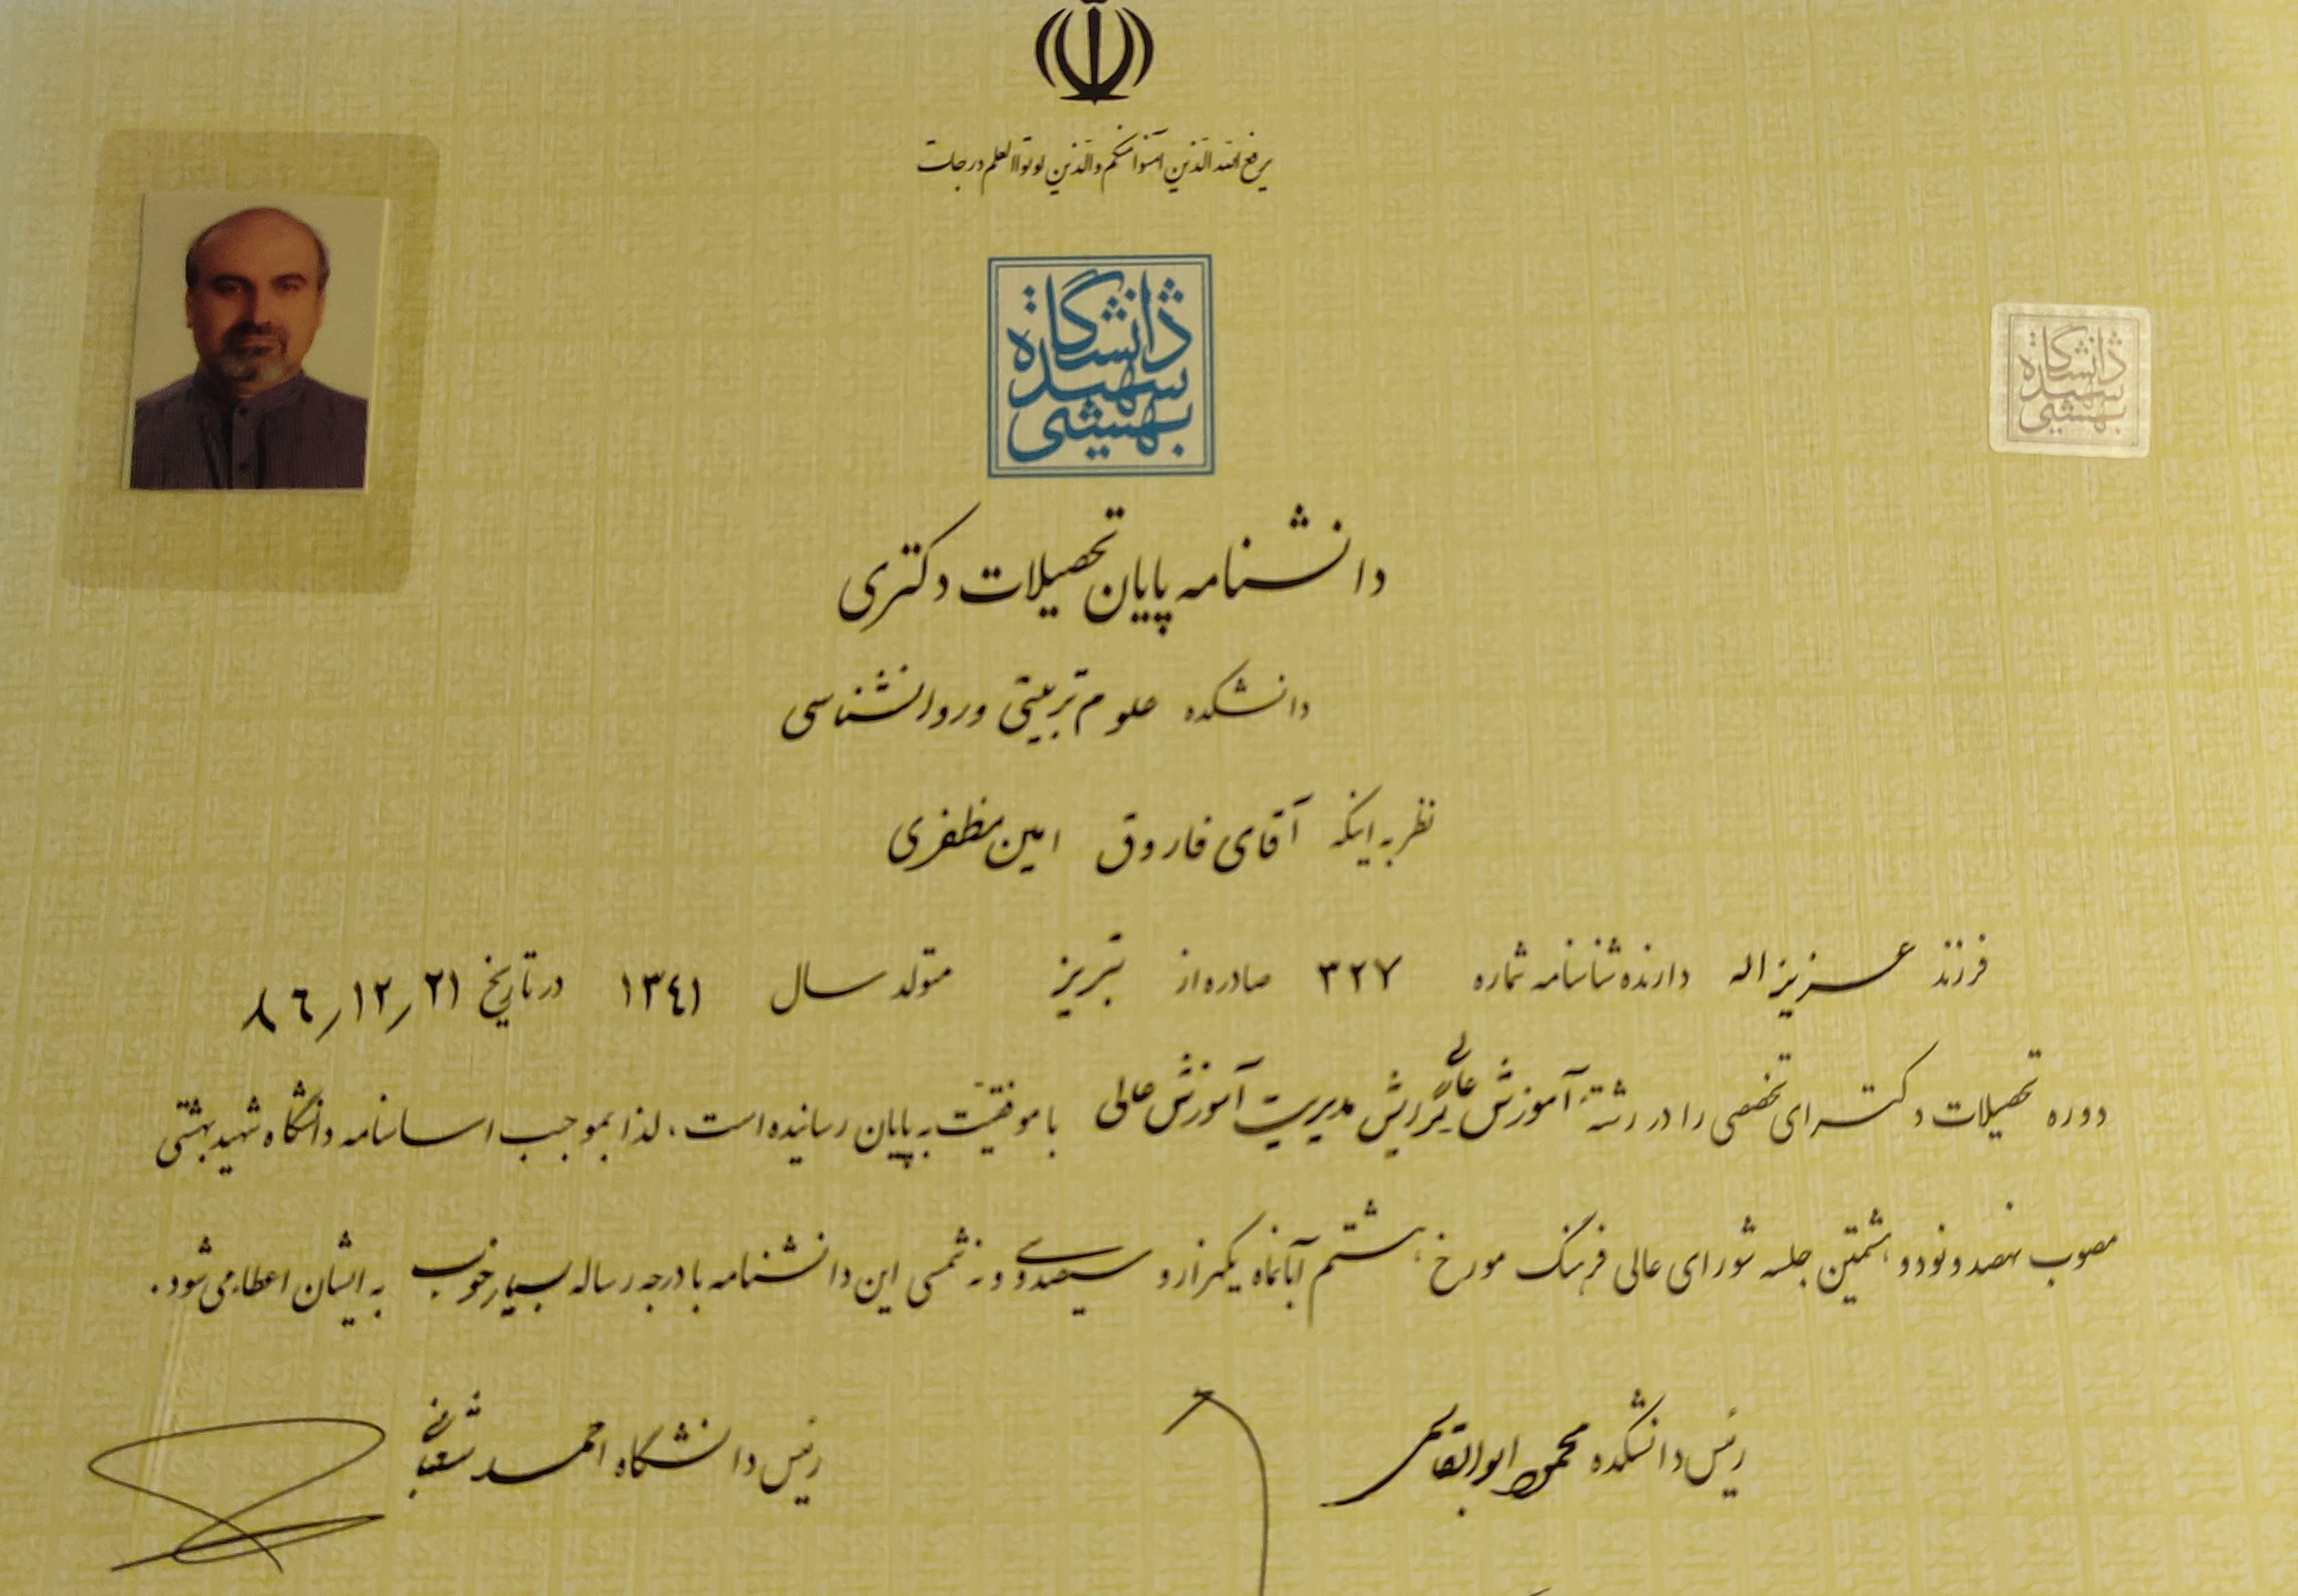 یرفع الله الذین آمنوا منکم والذین اوتوا العلم درجات
دانشگاه
شهید
بهشتی
دانشگاه
شهید
بهشتی
دانشنامه پایان تحصیلات دکتری
دانشکده علوم تربیتی و روانشناسی
نظر به اینکه آقای فاروق امین مظفری
فرزند عزیزاله دارنده شناسنامه شماره ۳۲۷ صادره از تبریز متولد سال ۱۳۴۱ در تاریخ ۸۶/۱۲/۲۱
دوره تحصیلات دکترای تخصصی را در رشته آموزش عالی گرایش مدیریت آموزش عالی با موفقیت به پایان رسانیده است، لذا بموجب اساسنامه دانشگاه شهید بهشتی
مصوب نهصد و نود و هشتمین جلسه شورای عالی فرهنگ مورخ هشتم آبانماه یکهزار و سیصد و سی و نه شمسی این دانشنامه با درجه رساله بسیار خوب به ایشان اعطاء می شود.
رئیس دانشکده محمود ابوالقاسمی
رئیس دانشگاه احمد شعبانی